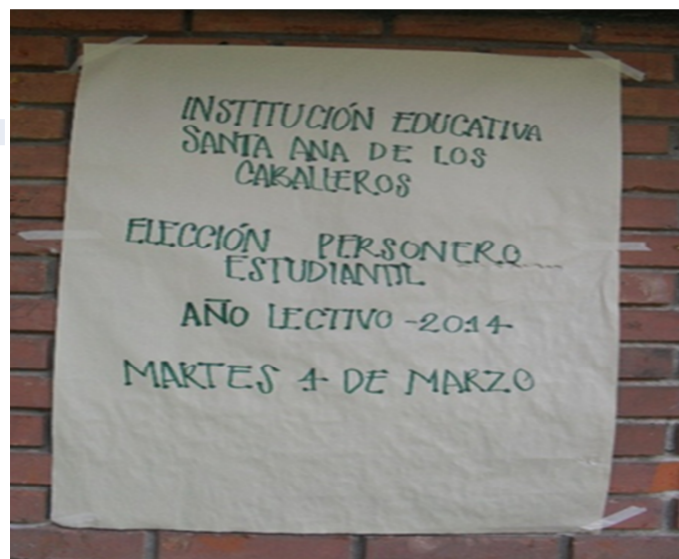 INSTITUCIÓN EDUCATIVA
SANTA ANA DE LOS
CABALLEROS
ELECCIÓN PERSONERO
ESTUDIANTIL
AÑO LECTIVO -2014-
MARTES 4 DE MARZO